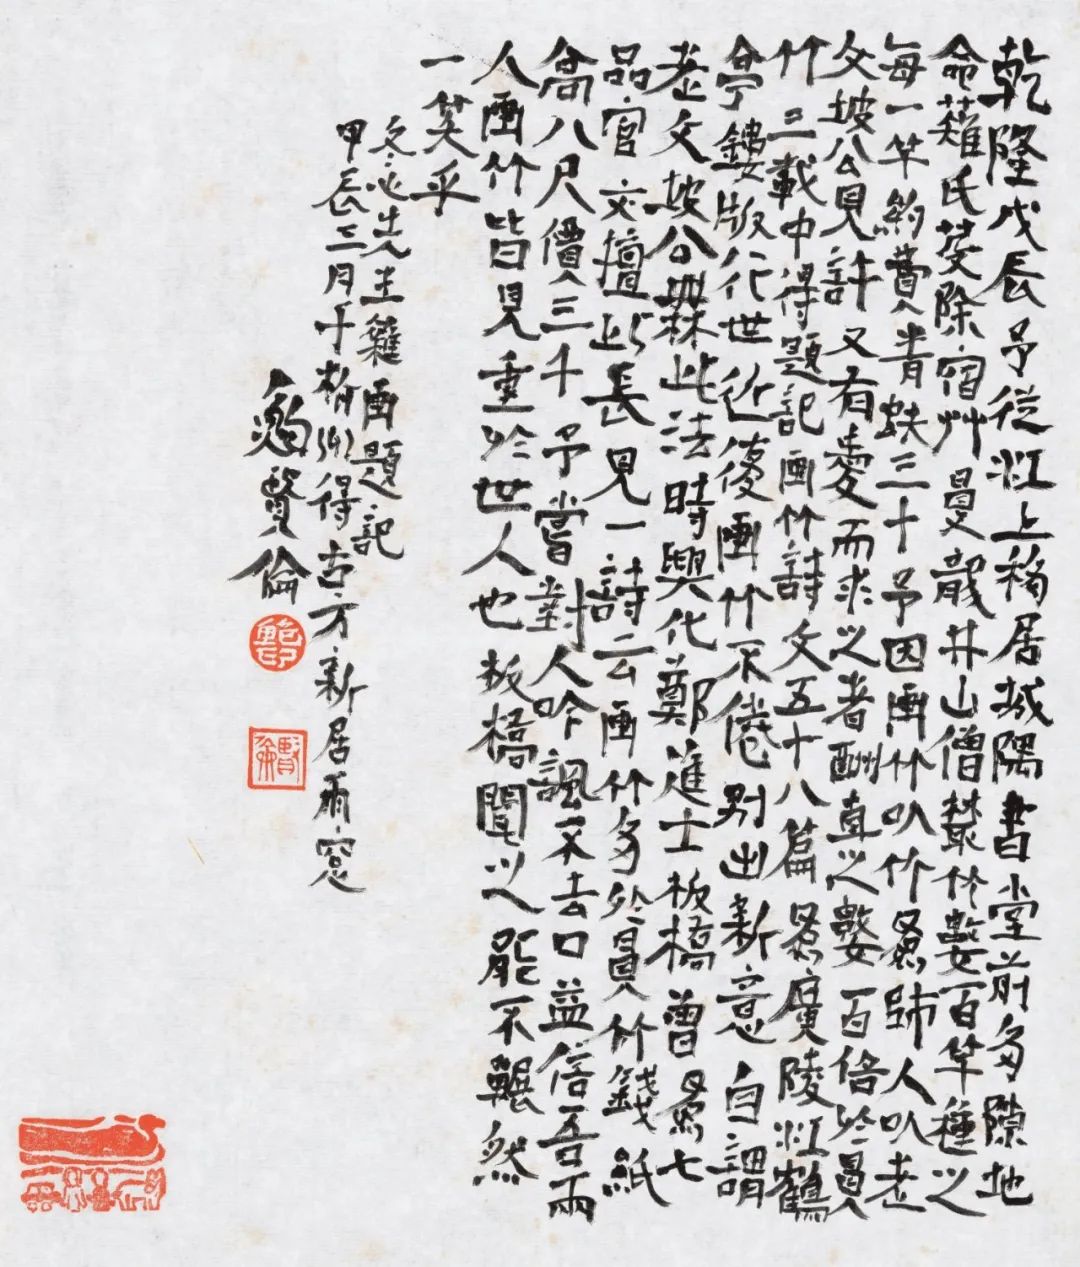 乾隆戊辰予從江上移居城隅書堂前多隙地
命薙氏芟除宿艸曼龍井山僧叢竹數百竿種之
每一竿約費青蚨三十予因畫竹以竹為師人以老
文坡公見許又有愛而求之者酬直之數百倍於買
竹三載中得題記畫竹詩文五十八篇為廣陵江鶴
亭鏤版行世近復畫竹不倦別出新意自謂
老文坡公無此法時興化鄭進士板橋曾為七
品官亦擅此長見一詩云畫竹多於買竹錢紙
高八尺價三千予嘗對人吟諷不去口益信吾兩
人畫竹皆見重於世人也板橋聞之能不囅然
一笑乎
冬心先生雜畫題記
甲辰三月十梢洲得古方新居雨窗
鮑賢倫
鮑印
賢倫